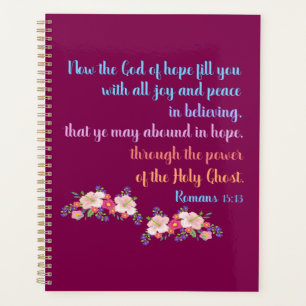 Now the God of hope fill you
with all joy and peace
in believing,
that ye may abound in hope,
through the power
of the Holy Ghost.
Romans 15:13